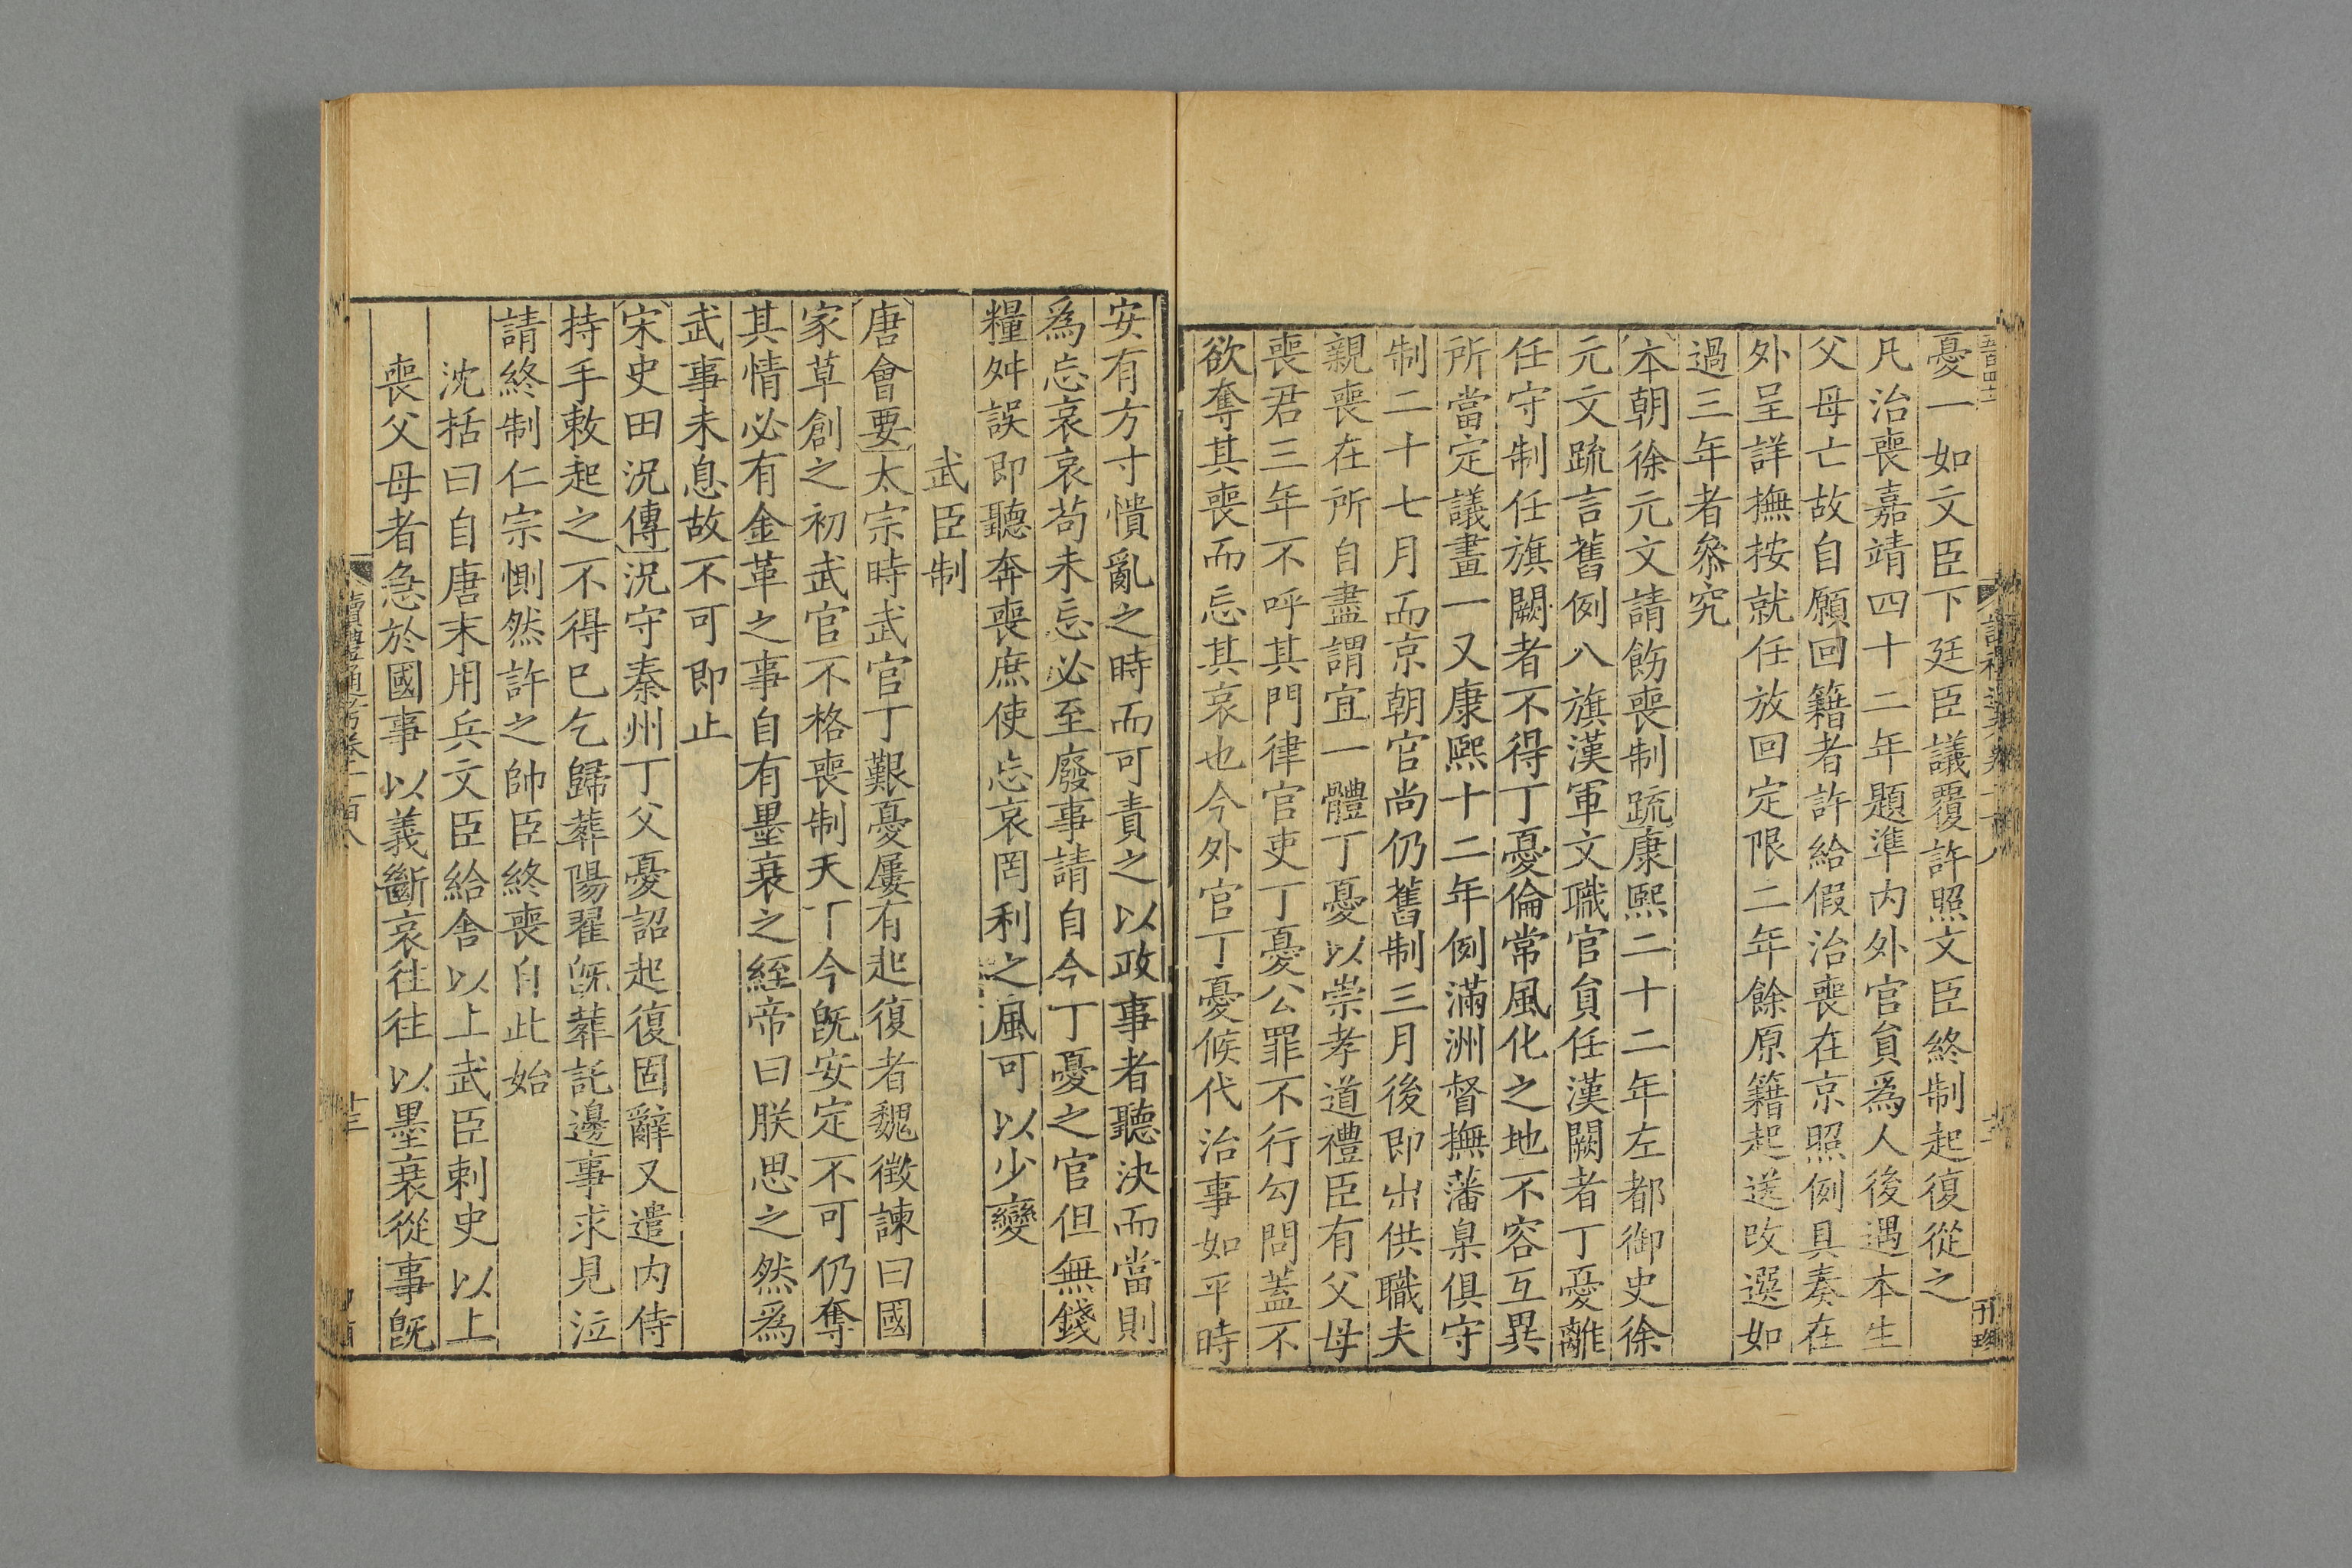 憂一如文臣下廷臣議覆許照文臣終制起復從之
凡治喪嘉靖四十二年題準内外官貟爲人後遇本生
父母亡故自願回籍者許給假治喪在京照例具奏在
外呈詳撫按就任放回定限二年餘原籍起送改選如
過三年者叅究
本朝徐元文請飭喪制疏康熙二十二年左都御史徐
元文疏言舊例八旗漢軍文職官貟任漢闕者丁憂離
任守制任旗闕者不得丁憂倫常風化之地不容互異
所當定議畫一又康熙十二年例滿洲督撫藩臬俱守
制二十七月而京朝官尚仍舊制三月後即出供職夫
親喪在所自盡謂宜一體丁憂以崇孝道禮臣有父母
喪君三年不呼其門律官吏丁憂公罪不行勾問蓋不
欲奪其喪而忘其哀也今外官丁憂候代治事如平時
安有方寸憒亂之時而可責之以政事者聽決而當則
爲忘哀哀苟未忘必至廢事請自今丁憂之官但無錢
糧舛誤即聽奔喪庶使忘哀罔利之風可以少變
武臣制
唐會要太宗時武官丁艱憂屢有起復者魏徴諫曰國
家草創之初武官不格喪制天下今旣安定不可仍奪
其情必有金革之事自有墨衰之絰帝曰朕思之然爲
武事未息故不可即止
宋史田況傳況守秦州丁父憂詔起復固辭又遣内侍
持手敕起之不得已乞歸葬陽翟旣葬託邊事求見泣
請終制仁宗惻然許之帥臣終喪自此始
沈括曰自唐末用兵文臣給舍以上武臣刺史以上
喪父母者急於國事以義斷哀往往以墨衰從事旣
讀禮通考卷一百八
十三